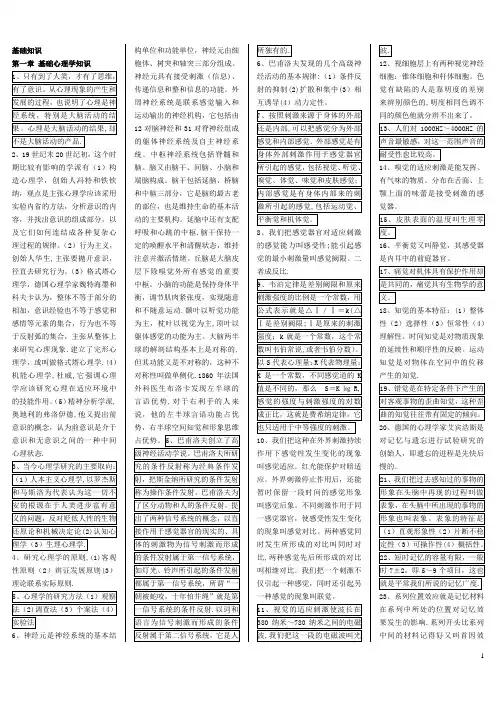 基础知识
第一章 基础心理学知识
1、只有到了人类,才有了思维,
有了意识。从心理现象的产生和
发展的过程,也说明了心理是神
经系统,特别是大脑活动的结
果。心理是大脑活动的结果,却
不是大脑活动的产品.
2、19世纪末20世纪初,这个时
期比较有影响的学派有(1)构
造心理学,创始人冯特和铁钦
纳,观点是主张心理学应该采用
实验内省的方法,分析意识的内
容,并找出意识的组成部分,以
及它们如何连结成各种复杂心
理过程的规律。(2)行为主义,
创始人华生,主张要抛开意识,
径直去研究行为。(3)格塔心
理学,德国心理学家魏特海墨和
科夫卡认为,整体不等于部分的
相加,意识经验也不等于感觉和
感情等元素的集合,行为也不等
于反射弧的集合,主张从整体上
来研究心理现象.建立了完形心
理学,或叫做格式塔心理学.(4)
机能心理学,杜威,它强调心理
学应该研究心理在适应环境中
的技能作用。(5)精神分析学派,
奥地利的弗洛伊德,他又提出前
意识的概念,认为前意识是介于
意识和无意识之间的一种中间
心理状态.
3、当今心理学研究的主要取向:
(1)人本主义心理学,以罗杰斯
和马斯洛为代表认为这一切不
安的根源在于人类进步富有意
义的问题,反对贬低人性的生物
还原论和机械决定论(2)认知心
理学(3)生理心理学
4、研究心理学的原则,(1)客观
性原则(2)辩证发展原则(3)
理论联系实际原则.
5、心理学的研究方法(1)观察
法(2)调查法(3)个案法(4)
实验法
6、神经元是神经系统的基本结
构单位和功能单位,神经元由细
胞体、树突和轴突三部分组成。
神经元具有接受刺激(信息)、
传递信息和整和信息的功能。外
周神经系统是联系感觉输入和
运动输出的神经机构,它包括由
12对脑神经和31对脊神经组成
的躯体神经系统及自主神经系
统。中枢神经系统包括脊髓和
脑。脑又由脑干、间脑、小脑和
端脑构成。脑干包括延脑、桥脑
和中脑三部分,它是脑的最古老
的部位,也是维持生命的基本活
动的主要机构。延脑中还有支配
呼吸和心跳的中枢.脑干保持一
定的唤醒水平和清醒状态,维持
注意并激活情绪。丘脑是大脑皮
层下除嗅觉外所有感觉的重要
中枢。小脑的功能是保持身体平
衡,调节肌肉紧张度,实现随意
和不随意运动.额叶以听觉功能
为主,枕叶以视觉为主,顶叶以
躯体感觉的功能为主。大脑两半
球的解剖结构基本上是对称的,
但其功能又是不对称的,这种不
对称性叫做单侧化.1860年法国
外科医生布洛卡发现左半球的
言语优势,对于右利手的人来
说,他的左半球言语功能占优
势,右半球空间知觉和形象思维
占优势。5、巴甫洛夫创立了高
级神经活动学说。巴甫洛夫所研
究的条件反射称为经典条件发
射,把斯金纳所研究的条件发射
称为操作条件发射。巴甫洛夫为
了区分动物和人的条件反射,提
出了两种信号系统的概念,以直
接作用于感觉器官的现实的、具
体的刺激物为信号刺激而形成
的条件发射属于第一信号系统,
如灯光、铃声所引起的条件发射
都属于第一信号系统,所谓"一
朝被蛇咬,十年怕井绳"就是第
一信号系统的条件反射.以词和
语言为信号刺激而形成的条件
反射属于第二信号系统。它是人
所独有的.
6、巴甫洛夫发现的几个高级神
经活动的基本规律:(1)条件反
射的抑制(2)扩散和集中(3)相
互诱导(4)动力定性。
7、按照刺激来源于身体的外部
还是内部,可以把感觉分为外部
感觉和内部感觉。外部感觉是有
身体外部刺激作用于感觉器官
所引起的感觉,包括视觉、听觉、
嗅觉、体觉、味觉和皮肤感觉;
内部感觉是有身体内部来的刺
激所引起的感觉,包括运动觉、
平衡觉和机体觉。
8、我们把感觉器官对适应刺激
的感觉能力叫感受性;能引起感
觉的最小刺激量叫感觉阈限。二
者成反比.
9、韦伯定律是差别阈限和原来
刺激强度的比例是一个常数,用
公式表示就是△Ⅰ/Ⅰ=k(△
Ⅰ是差别阈限;Ⅰ是原来的刺激
强度;k就是一个常数,这个常
数叫韦伯常说,或者韦伯分数)。
以S代表心理量;R代表物理量;
K是一个常数,不同感觉道的K
值是不同的,那么 S=K lg R,
感觉的强度与刺激强度的对数
成正比,这就是费希纳定律。它
也只适用于中等强度的刺激。
10、我们把这种在外界刺激持续
作用下感觉性发生变化的现象
叫感觉适应。红光能保护对暗适
应。外界刺激停止作用后,还能
暂时保留一段时间的感觉形象
叫感觉后象。不同刺激作用于同
一感觉器官,使感受性发生变化
的现象叫感觉对比。两种感觉同
时发生所形成的对比叫同时对
比,两种感觉先后所形成的对比
叫相继对比。我们把一个刺激不
仅引起一种感觉,同时还引起另
一种感觉的现象叫联觉。
11、视觉的适应刺激使波长在
380纳米~780纳米之间的电磁
波.我们把这一段的电磁波叫光
波.
12、视细胞层上有两种视觉神经
细胞:锥体细胞和杆体细胞。色
觉有缺陷的人是靠明度的差别
来辨别颜色的,明度相同色调不
同的颜色他就分辨不出来了。
13、人们对1000HZ~4000HZ的
声音最敏感,对这一范围声音的
耐受性也比较高。
14、嗅觉的适应刺激是能发挥、
有气味的物质。分布在舌面、上
颚上面的味蕾是接受刺激的感
觉器。
15、皮肤表面的温度叫生理零
度。
16、平衡觉又叫静觉,其感受器
是内耳中的前庭器官。
17、痛觉对机体具有保护作用却
是共同的,痛觉具有生物学的意
义。
18、知觉的基本特征:(1)整体
性(2)选择性(3)恒常性(4)
理解性。时间知觉是对物质现象
的延续性和顺序性的反映。运动
知觉是对物体在空间中的位移
产生的知觉.
19、错觉是在特定条件下产生的
对客观事物的歪曲知觉,这种歪
曲的知觉往往带有固定的倾向。
20、德国的心理学家艾宾浩斯是
对记忆与遗忘进行试验研究的
创始人,即遗忘的进程是先快后
慢的.
21、我们把过去感知过的事物的
形象在头脑中再现的过程叫做
表象,在头脑中所出现的事物的
形象也叫表象。表象的特征是
(1)直观形象性(2)片断不稳
定性(3)可操作性(4)概括性.
22、短时记忆的容量有限,一般
时7±2,即5—9个项目,这也
就是平常我们所说的记忆广度。
23、系列位置效应就是记忆材料
在系列中所处的位置对记忆效
果发生的影响.系列开头比系列
中间的材料记得好又叫首因效
1